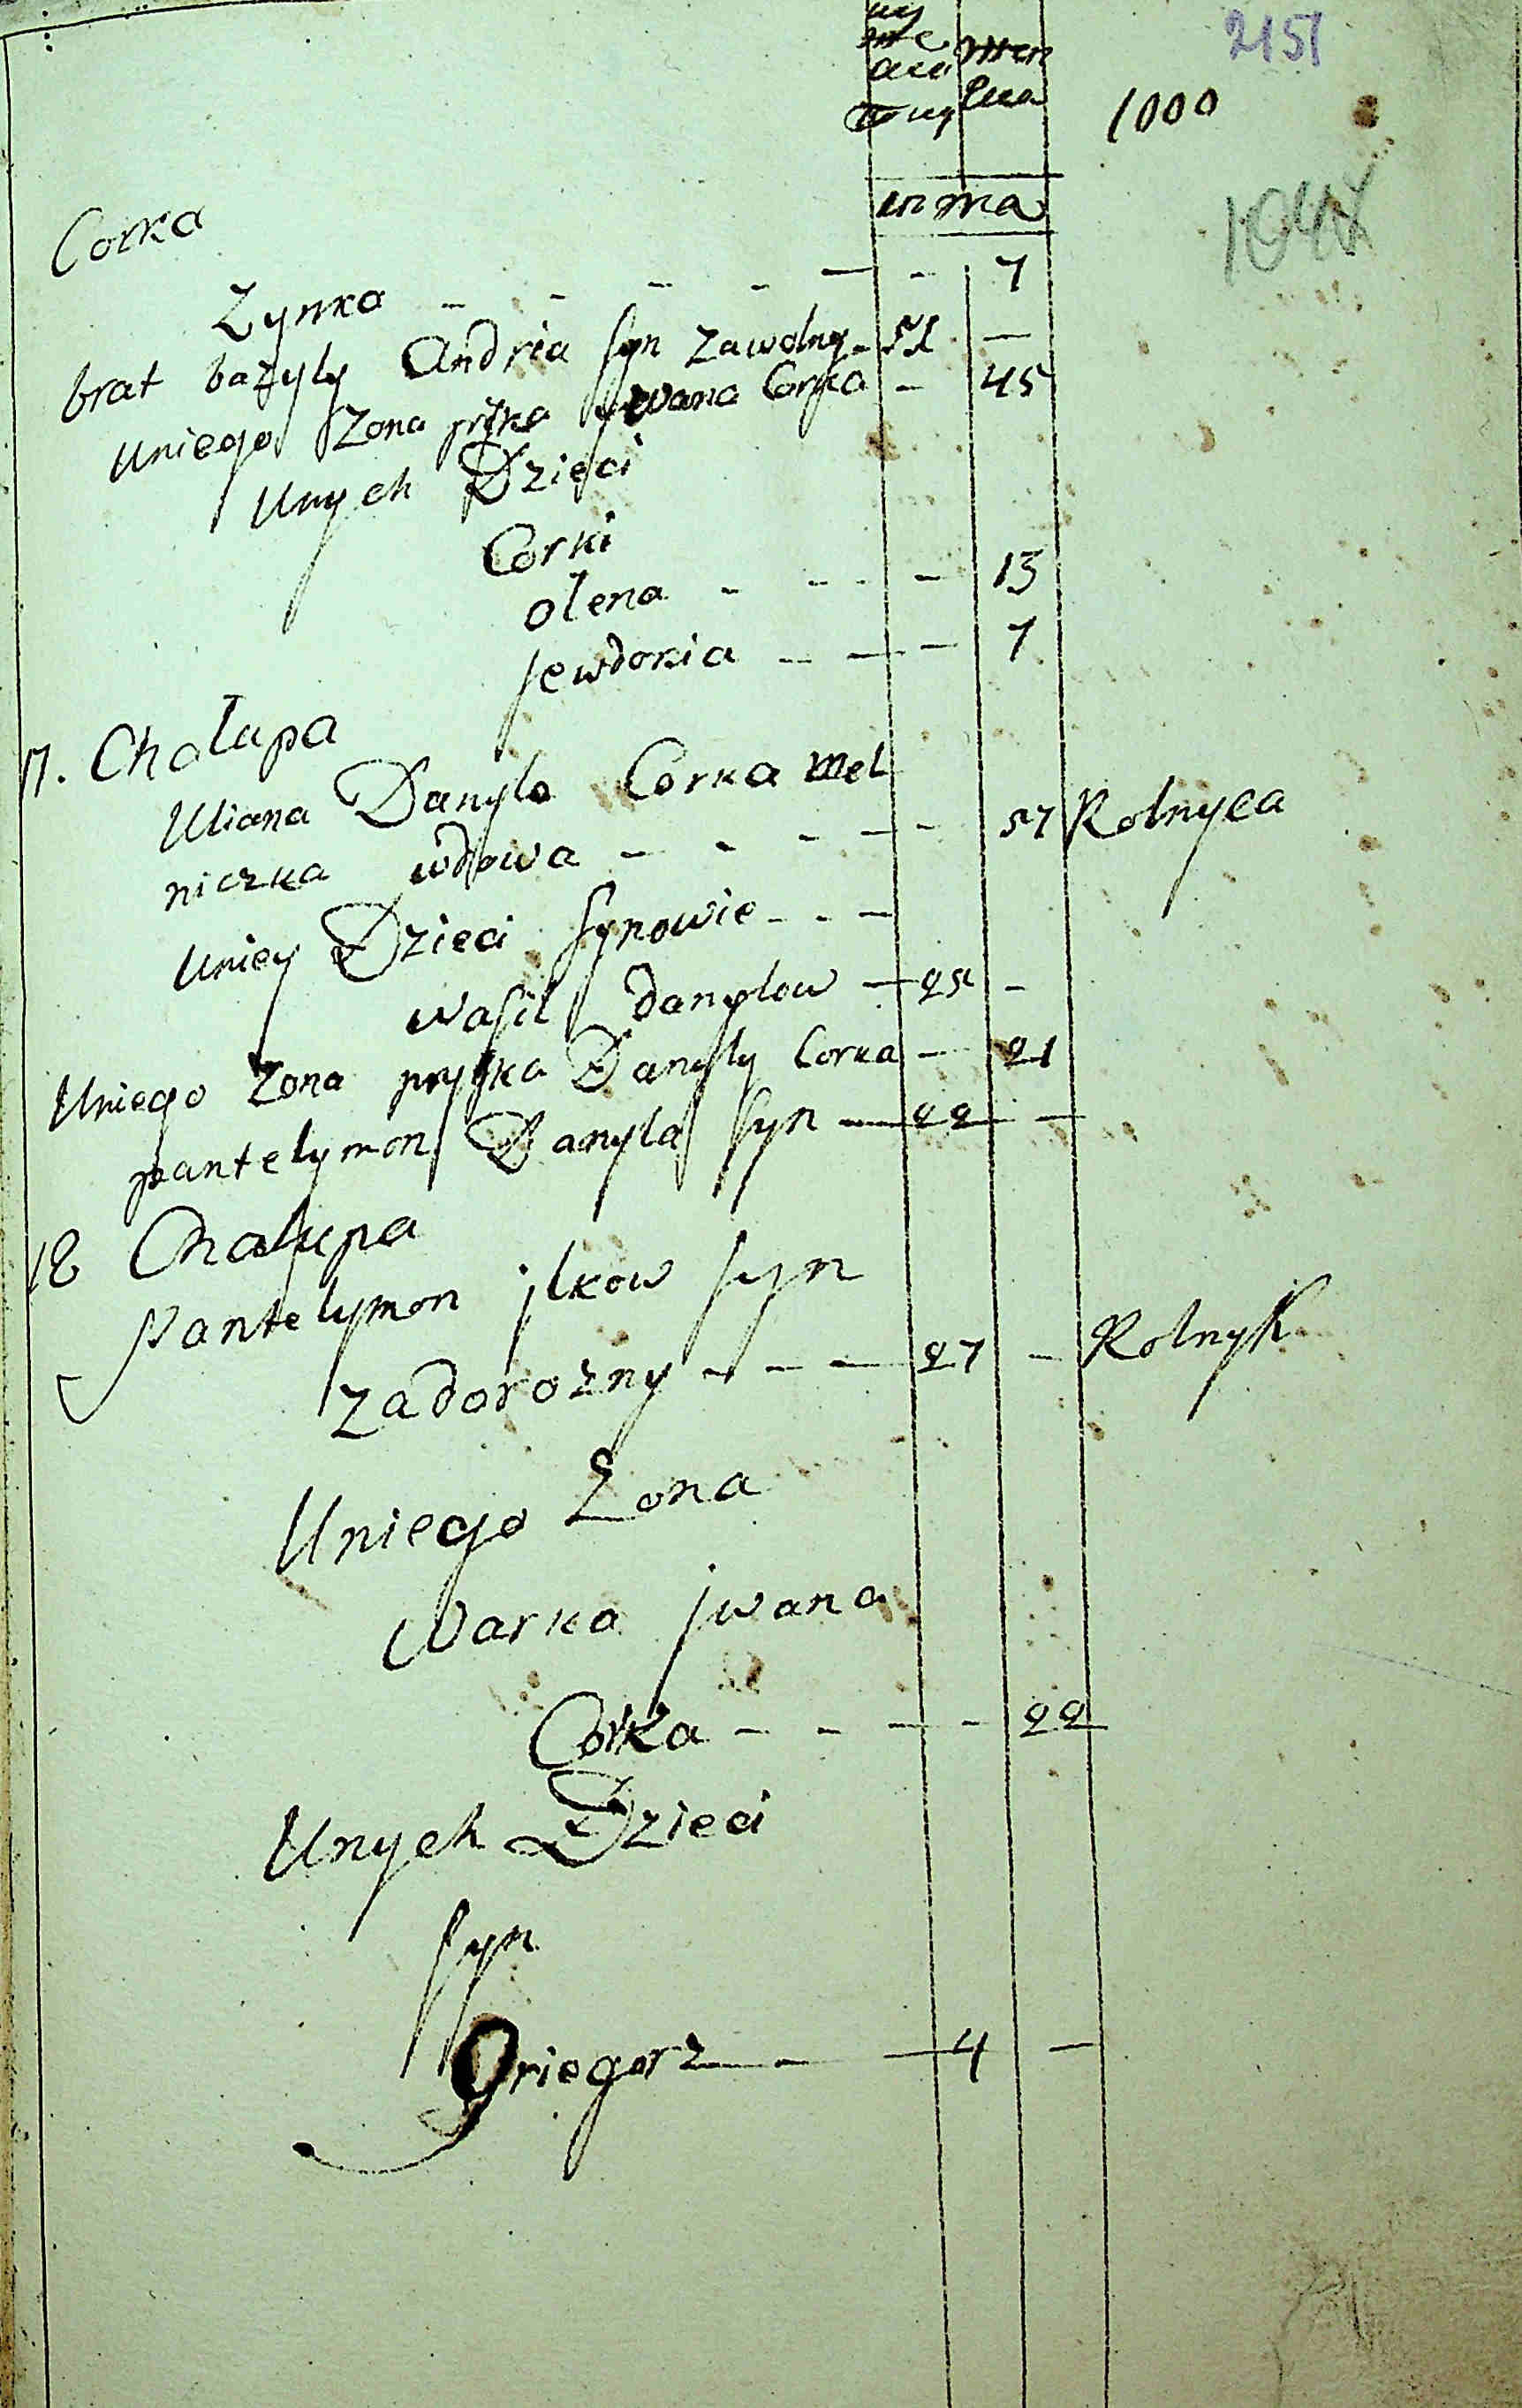 2151
1000
in ma
Corka
Zynka - - - - - - 7
brat bazyly Andria syn zawolny - 51 -
Uniego Zona prÿska jwana Corka - 45
Unych Dzieci
Corki
olena - - - - 13
jewdokia - - - 7
17. Chałupa
Uliana Danyla Corka Mel
niczka wdowa - - - - - 57 Rolnyca
Uniey Dzieci synowie - - -
wasil danylow - 25 -
Uniego Zona pryska Danyly Corka - 21
pantelymon Danyla syn - 22 -
18 Chałupa
Pantelymon jlkow syn
zadorozny - - - 27 - Rolnyk
Uniego Zona
Warka jwana
Corka - - - - 22
Unych Dzieci
syn
Griegorz - - - 4 -